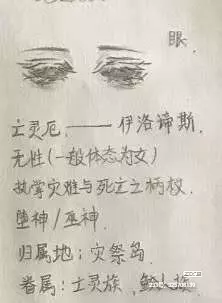 眼
亡灵厄.——伊洛谛斯.
无性(一般体态为女)
执掌灾难与死亡之柄权.
堕神/巫神.
归属地:灾祭岛.
眷属:亡灵族.